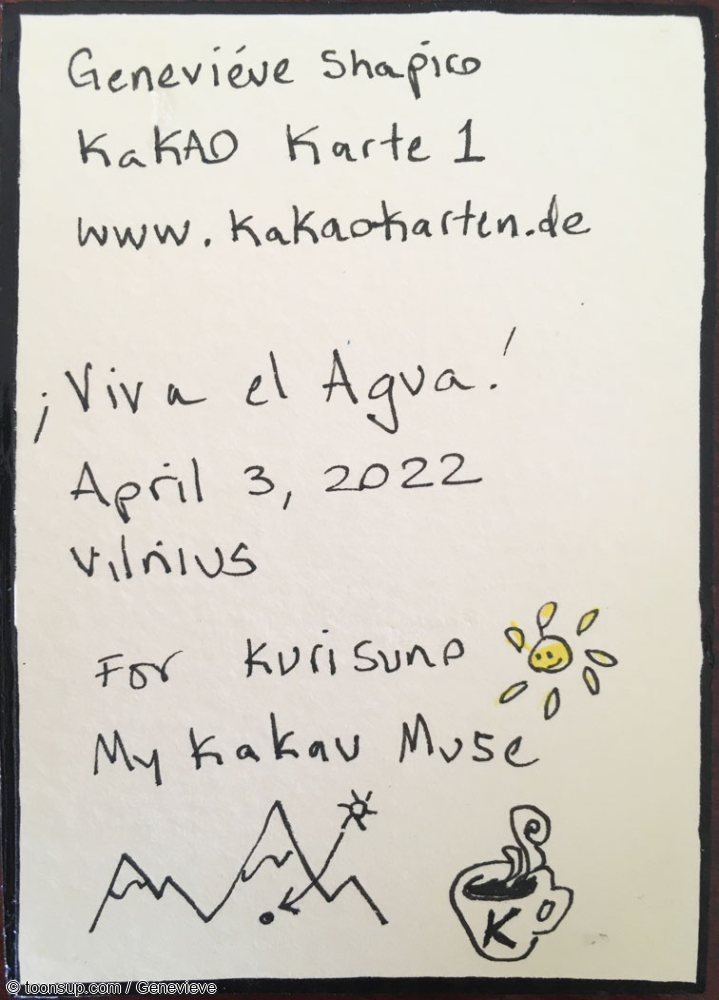 Geneviéve Shapiro
KaKAO Karte 1
www.kakaokarten.de
¡Viva el Agua!
April 3, 2022
Vilnius
For Kurisuno
My Kakau Muse
K
© toonsup.com / Genevieve